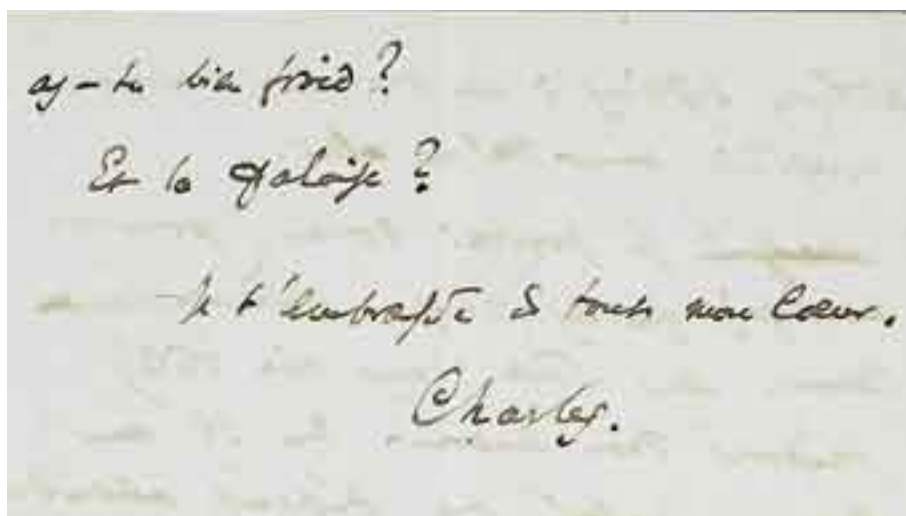 as-tu bien froid ?
Et la falaise ?
Je t'embrasse de tout mon cœur.
Charles.